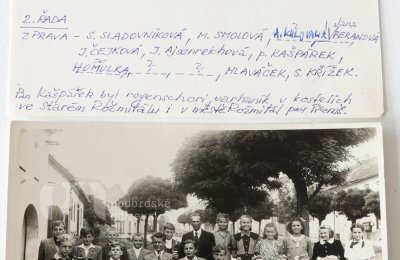 2. ŘADA
Jana
ZPRAVA - S. SLADOVNÍKOVÁ, M. SMOLOVÁ, BERANOVÁ
J. ČEJKOVÁ, J. Ajsenreichová, p. KAŠPÁREK,
HOMULKA, ?, ?, HLAVÁČEK, S. KŘÍŽEK.
Pan Kašpárek byl regenschori, varhaník v kostelích
ve Starém Rožmitálu i v městě Rožmitál pod Třemš.